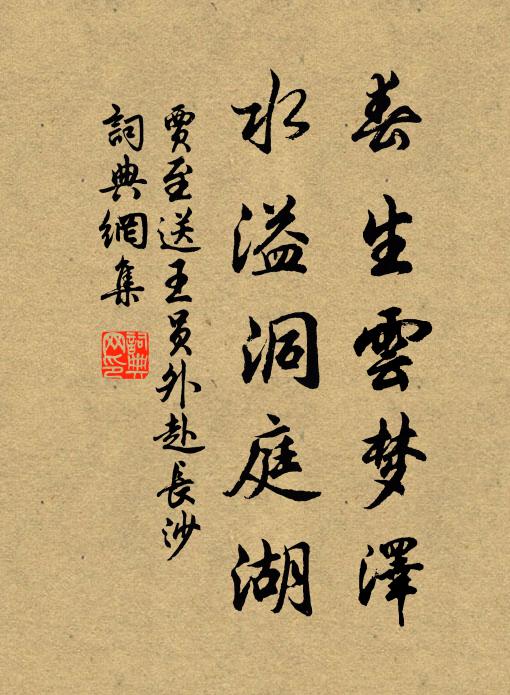 春生雲梦澤
水溢洞庭湖
賈至送王员外赴長沙
詞典網集
詞典网印